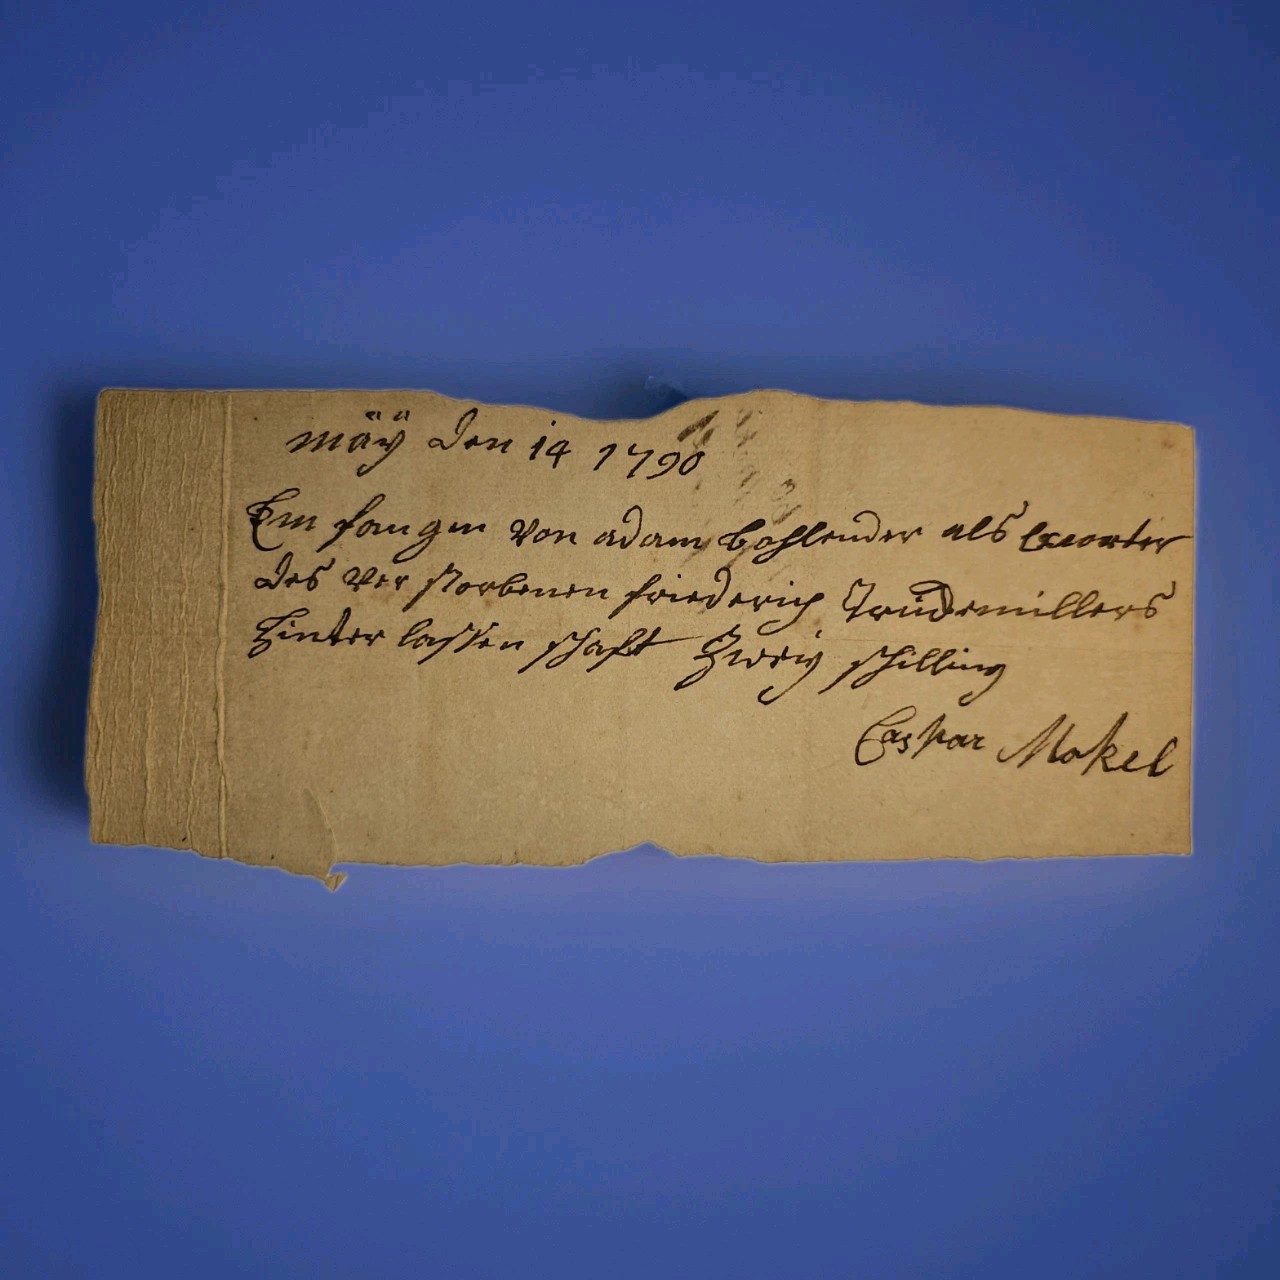 mäÿ den 14 1790
Em fangen von adam bohlender als Exorter
des ver storbenen friederich Trudemillers
Hinter lassen schaft Zweÿ schilling
Caspar Mokel